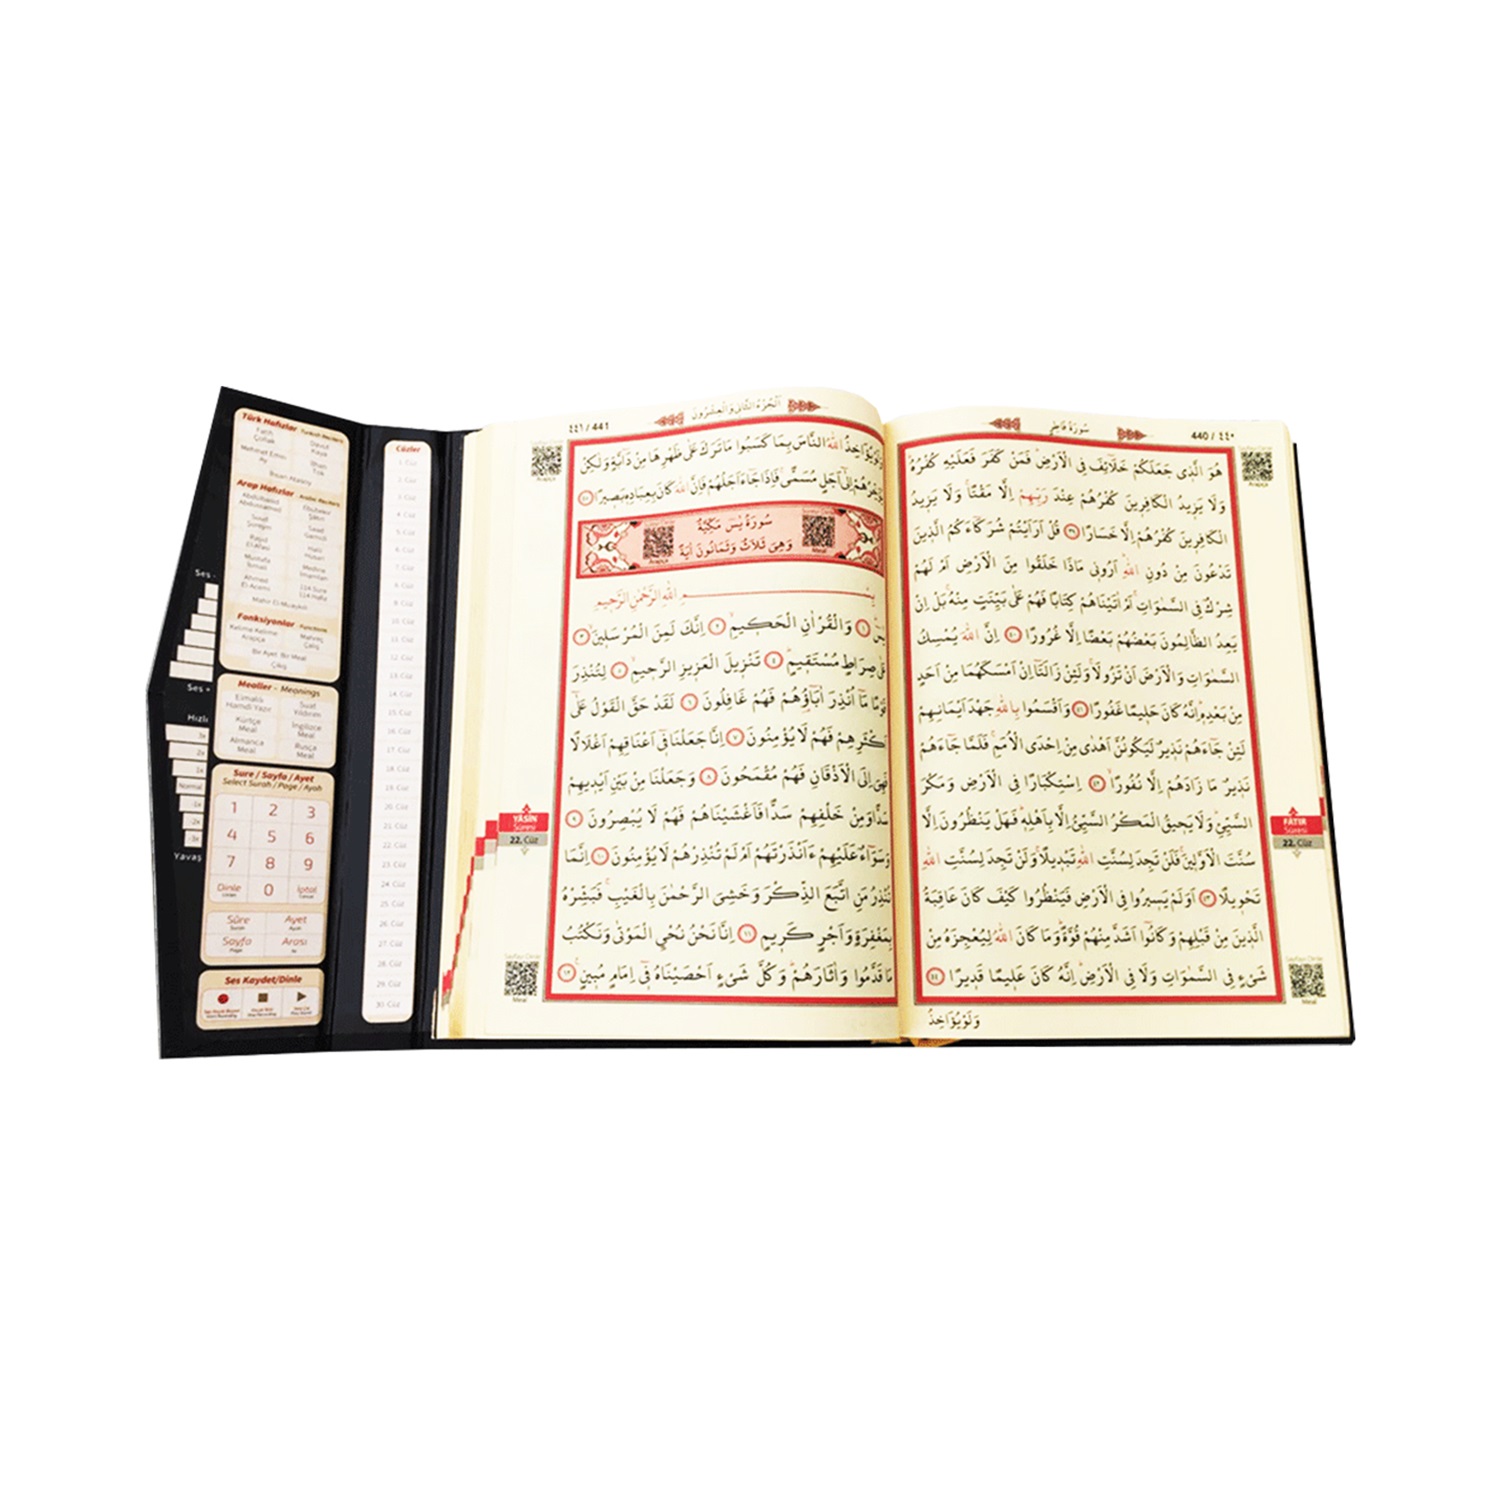 Türk Hafızlar - Turkish Reciters
Fatih Çollak
Davut Kaya
Mehmet Emin Ay
İlhan Tok
İhsan Atasoy
Arap Hafızlar - Arabic Reciters
Abdulbasid Abdussamed
Ebubekir Şatıri
Suud Şureym
Saad Gamidi
Raşid El-Afasi
Halil Husari
Mustafa İsmail
Medine İmamları
Ahmed El-Acemi
114 Sure 114 Hafız
Mahir El-Muaykili
Fonksiyonlar - Functions
Kelime Kelime Arapça
Bir Ayet Bir Meal
Çıkış
Mealler - Meanings
Elmalılı Hamdi Yazır
Suat Yıldırım
Kürtçe Meal
İngilizce Meal
Almanca Meal
Rusça Meal
Sure / Sayfa / Ayet
Select Surah / Page / Ayah
1 2 3
4 5 6
7 8 9
Dinle 0 İptal
Sûre Ayet
Sayfa Arası
Ses Kaydet/Dinle
Ses -
Ses +
Hızlı
3x
2x
1x
Normal
-1x
-2x
-3x
Yavaş
Cüzler
1. Cüz
2. Cüz
3. Cüz
4. Cüz
5. Cüz
6. Cüz
7. Cüz
8. Cüz
9. Cüz
10. Cüz
11. Cüz
12. Cüz
13. Cüz
14. Cüz
15. Cüz
16. Cüz
17. Cüz
18. Cüz
19. Cüz
20. Cüz
21. Cüz
22. Cüz
23. Cüz
24. Cüz
25. Cüz
26. Cüz
27. Cüz
28. Cüz
29. Cüz
30. Cüz
440 / ٤٤٠
سُورَةُ فَاطِرٍ
Arapça
هُوَ الَّذِى جَعَلَكُمْ خَلَٓائِفَ فِى الْاَرْضِ فَمَنْ كَفَرَ فَعَلَيْهِ كُفْرُهُ
وَلَا يَزِيدُ الْكَافِرِينَ كُفْرُهُمْ عِنْدَ رَبِّهِمْ اِلَّا مَقْتًا وَلَا يَزِيدُ
الْكَافِرِينَ كُفْرُهُمْ اِلَّا خَسَارًا ٣٩ قُلْ اَرَاَيْتُمْ شُرَكَٓاءَكُمُ الَّذِينَ
تَدْعُونَ مِنْ دُونِ اللّٰهِ اَرُونِى مَاذَا خَلَقُوا مِنَ الْاَرْضِ اَمْ لَهُمْ
شِرْكٌ فِى السَّمٰوَاتِ اَمْ اٰتَيْنَاهُمْ كِتَابًا فَهُمْ عَلٰى بَيِّنَتٍ مِنْهُ بَلْ اِنْ
يَعِدُ الظَّالِمُونَ بَعْضُهُمْ بَعْضًا اِلَّا غُرُورًا ٤٠ اِنَّ اللّٰهَ يُمْسِكُ
السَّمٰوَاتِ وَالْاَرْضَ اَنْ تَزُولَا وَلَئِنْ زَالَتَٓا اِنْ اَمْسَكَهُمَا مِنْ اَحَدٍ
مِنْ بَعْدِهِ اِنَّهُ كَانَ حَلِيمًا غَفُورًا ٤١ وَاَقْسَمُوا بِاللّٰهِ جَهْدَ اَيْمَانِهِمْ
لَئِنْ جَٓاءَهُمْ نَذِيرٌ لَيَكُونُنَّ اَهْدٰى مِنْ اِحْدَى الْاُمَمِ فَلَمَّا جَٓاءَهُمْ
نَذِيرٌ مَا زَادَهُمْ اِلَّا نُفُورًا ٤٢ اِسْتِكْبَارًا فِى الْاَرْضِ وَمَكْرَ
السَّيِّئِ وَلَا يَحِيقُ الْمَكْرُ السَّيِّئُ اِلَّا بِاَهْلِهِ فَهَلْ يَنْظُرُونَ اِلَّا
سُنَّتَ الْاَوَّلِينَ فَلَنْ تَجِدَ لِسُنَّتِ اللّٰهِ تَبْدِيلًا وَلَنْ تَجِدَ لِسُنَّتِ اللّٰهِ
تَحْوِيلًا ٤٣ اَوَلَمْ يَسِيرُوا فِى الْاَرْضِ فَيَنْظُرُوا كَيْفَ كَانَ عَاقِبَةُ
الَّذِينَ مِنْ قَبْلِهِمْ وَكَانُٓوا اَشَدَّ مِنْهُمْ قُوَّةً وَمَا كَانَ اللّٰهُ لِيُعْجِزَهُ مِنْ
شَىْءٍ فِى السَّمٰوَاتِ وَلَا فِى الْاَرْضِ اِنَّهُ كَانَ عَلِيمًا قَدِيرًا ٤٤
وَلَوْ يُؤَاخِذُ
FATIR
Sûresi
22. Cüz
Meal
٤٤١ / 441
اَلْجُزْءُ الثَّانِى وَالْعِشْرُونَ
Arapça
وَلَوْ يُؤَاخِذُ اللّٰهُ النَّاسَ بِمَا كَسَبُوا مَا تَرَكَ عَلٰى ظَهْرِهَا مِنْ دَٓابَّةٍ وَلٰكِنْ
يُؤَخِّرُهُمْ اِلٰٓى اَجَلٍ مُسَمًّى فَاِذَا جَٓاءَ اَجَلُهُمْ فَاِنَّ اللّٰهَ كَانَ بِعِبَادِهِ بَصِيرًا ٤٥
سُورَةُ يٰسٓ مَكِّيَّةٌ
وَهِىَ ثَلَاثٌ وَثَمَانُونَ اٰيَةً
Arapça
Meal
بِسْمِ اللّٰهِ الرَّحْمٰنِ الرَّحِيمِ
يٰسٓ ١ وَالْقُرْاٰنِ الْحَكِيمِ ٢ اِنَّكَ لَمِنَ الْمُرْسَلِينَ ٣
عَلٰى صِرَاطٍ مُسْتَقِيمٍ ٤ تَنْزِيلَ الْعَزِيزِ الرَّحِيمِ ٥ لِتُنْذِرَ
قَوْمًا مَٓا اُنْذِرَ اٰبَٓاؤُهُمْ فَهُمْ غَافِلُونَ ٦ لَقَدْ حَقَّ الْقَوْلُ عَلٰٓى
اَكْثَرِهِمْ فَهُمْ لَا يُؤْمِنُونَ ٧ اِنَّا جَعَلْنَا فِٓى اَعْنَاقِهِمْ اَغْلَالًا
فَهِىَ اِلَى الْاَذْقَانِ فَهُمْ مُقْمَحُونَ ٨ وَجَعَلْنَا مِنْ بَيْنِ اَيْدِيهِمْ
سَدًّا وَمِنْ خَلْفِهِمْ سَدًّا فَاَغْشَيْنَاهُمْ فَهُمْ لَا يُبْصِرُونَ ٩
وَسَوَٓاءٌ عَلَيْهِمْ ءَاَنْذَرْتَهُمْ اَمْ لَمْ تُنْذِرْهُمْ لَا يُؤْمِنُونَ ١٠ اِنَّمَا
تُنْذِرُ مَنِ اتَّبَعَ الذِّكْرَ وَخَشِىَ الرَّحْمٰنَ بِالْغَيْبِ فَبَشِّرْهُ
بِمَغْفِرَةٍ وَاَجْرٍ كَرِيمٍ ١١ اِنَّا نَحْنُ نُحْىِ الْمَوْتٰى وَنَكْتُبُ
مَا قَدَّمُوا وَاٰثَارَهُمْ وَكُلَّ شَىْءٍ اَحْصَيْنَاهُ فِٓى اِمَامٍ مُبِينٍ ١٢
YÂSİN
Sûresi
22. Cüz
Meal